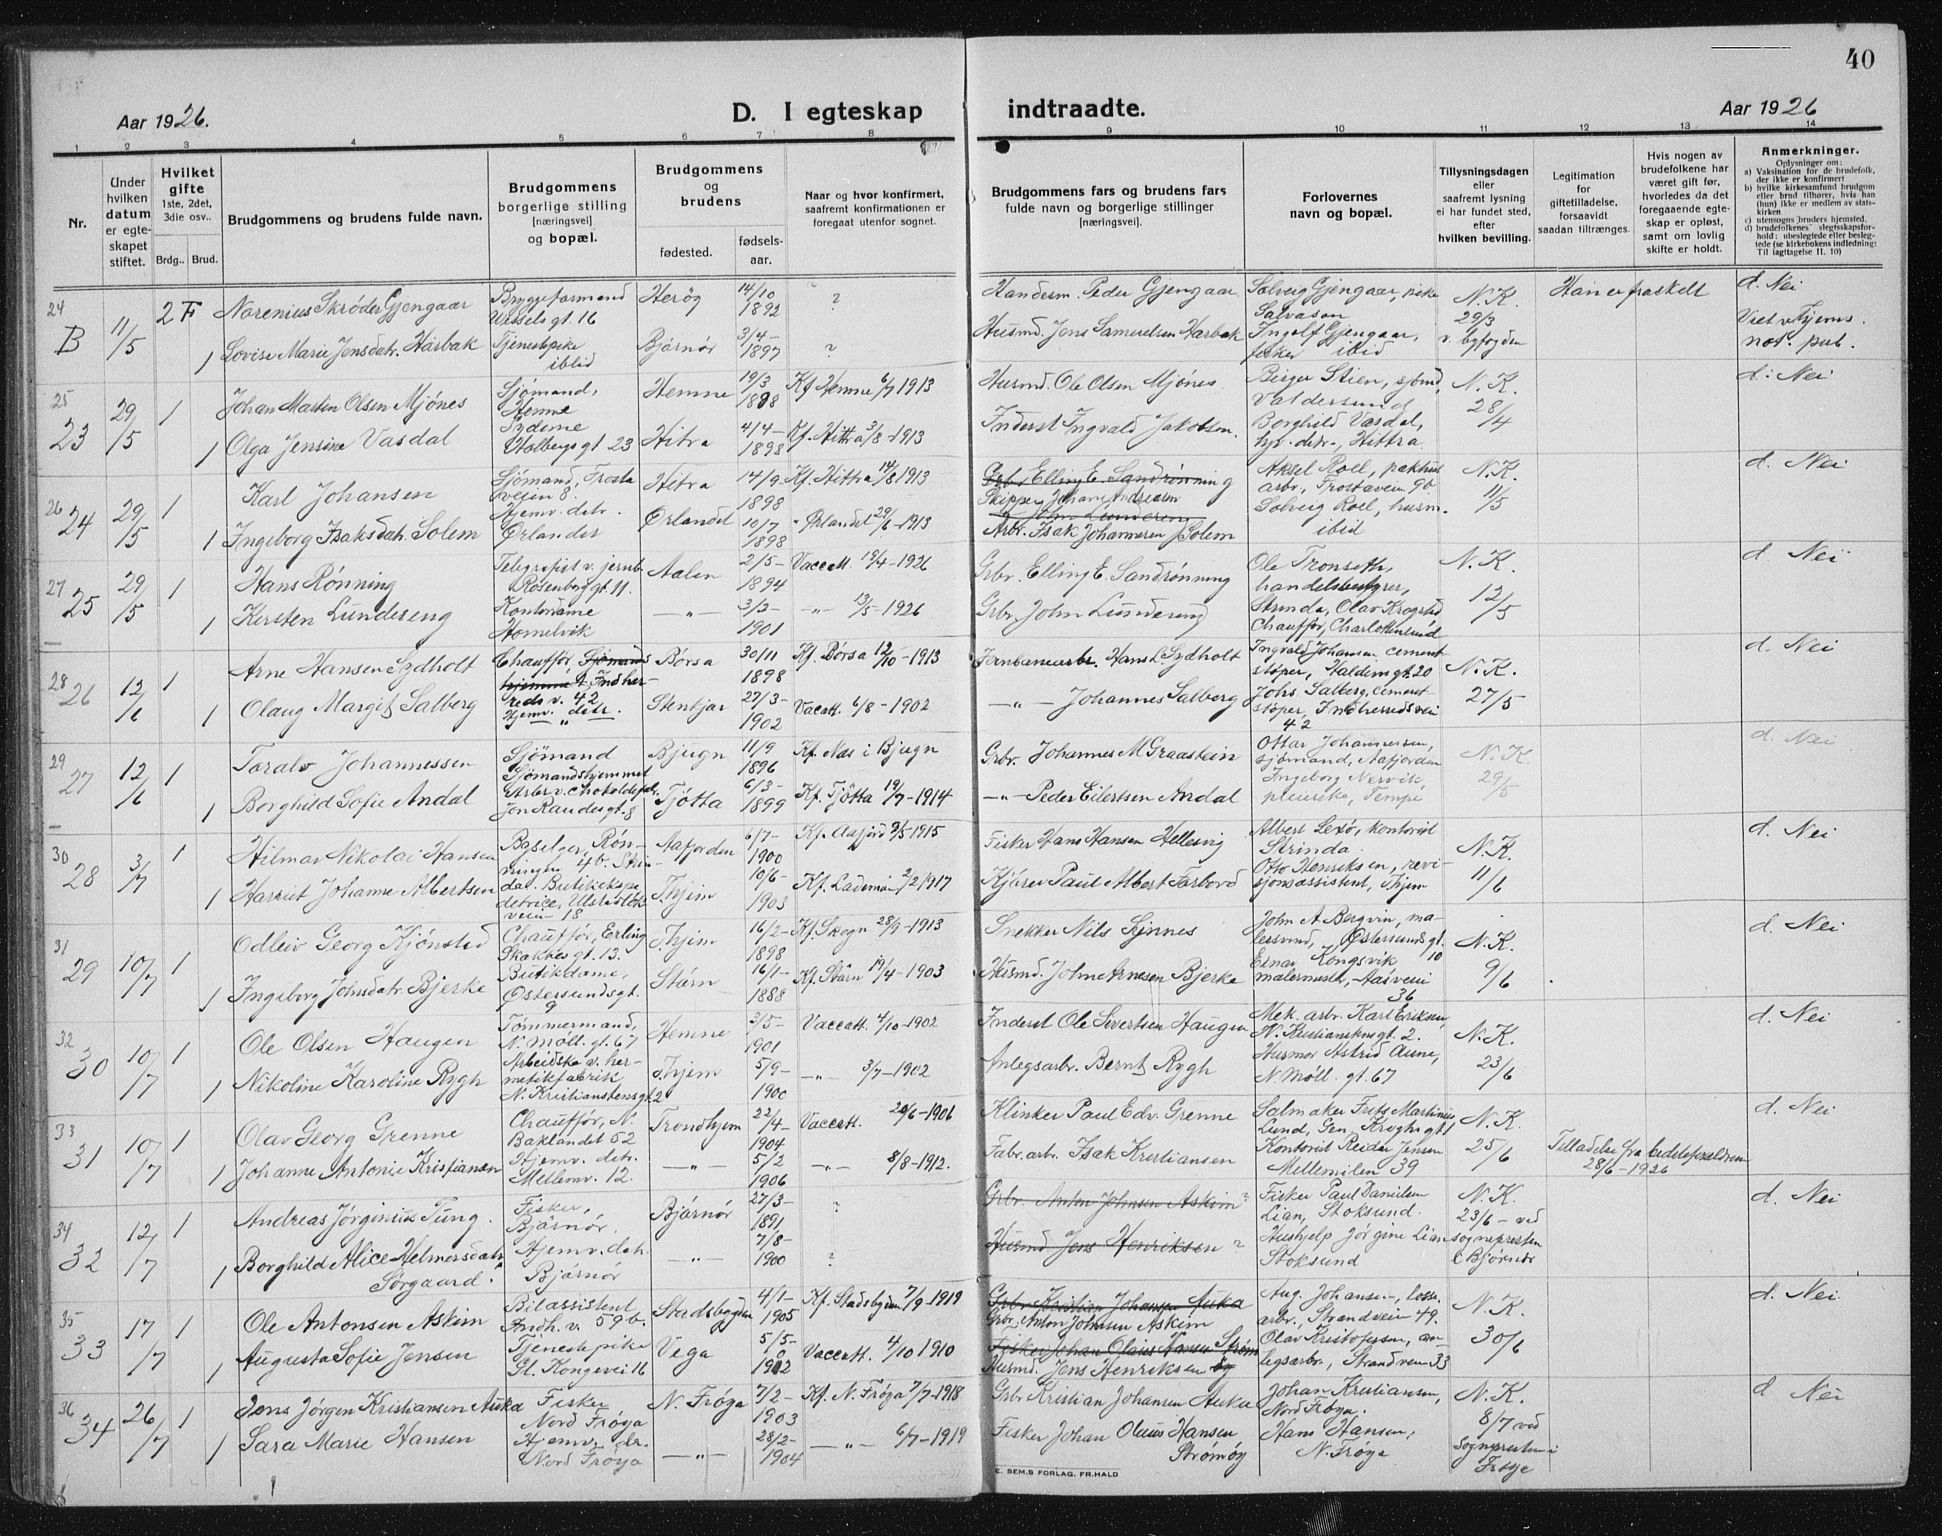 40
Aar 1926.
D. I egteskap indtraadte.
Aar 1926
1 2 3 4 5 6 7 8 9 10 11 12 13 14
Nr.
Under hvilken datum er egteskapet stiftet.
Hvilket gifte 1ste, 2det, 3die osv..
Brdg.. Brud.
Brudgommens og brudens fulde navn.
Brudgommens borgerlige stilling [næringsvei] og bopæl.
Brudgommens og brudens
fødested. fødsels-aar.
Naar og hvor konfirmert, saafremt konfirmationen er foregaat utenfor sognet.
Brudgommens fars og brudens fars fulde navn og borgerlige stillinger [næringsvei].
Forlovernes navn og bopæl.
Tillysningsdagen eller saafremt lysning ei har fundet sted, efter hvilken bevilling.
Legitimation for giftetilladelse, forsaavidt saadan tiltrænges.
Hvis nogen av brudefolkene har været gift før, hvorledes da det foregaaende egteskap er opløst, samt om lovlig skifte er holdt.
Anmerkninger.
Oplysninger om:
a) Vaksination for de brudefolk, der ikke er konfirmert
b) hvilke kirkesamfund brudgom eller brud tilhører, hvis han (hun) ikke er medlem av statskirken
c) utensogns bruders hjemsted.
d) brudefolkenes slegtsskapsforhold: ubeslegtede eller beslegtede (se kirkebokens indledning: Til iagttagelse II. 10)
24 B 11/5 2 F Norenius Skrøder Gjengaar
Bryggeformand Wessels gt. 16
Herøy 14/10 1892 ?
Handesm. Peder Gjengaar
Solveig Gjengaar, pike Salvasen
N.K. 29/3 v. byfogden
Han er fraskelt
d. Nei
1 Lovise Marie Jensdatr. Harbak
Tjenestepike ibid
Bjørnør 3/4 - 1897 ?
Husmd. Jens Samuelsen Harbak
Ingolf Gjengaar, fisker ibid
Viet v. Thjems not. pub.
25 23 29/5 1 Johan Martin Olsen Mjønes
Sjømand, Hemne
Hemne 19/3 1898 Kf. Hemne 6/7 1913
Husmd. Ole Olsen Mjønes
Birger Stien, sjømd, Valdersund
N.K. 28/4
d: Nei
1 Olga Jensine Vasdal
Syderne Holbergs gt 23
Hitra 4/4 - 1898 Kf. Hittra 3/8 - 1913
Inderst Ingvald Jakobsen.
Borghild Vasdal, hjv. detr., Hittra
26 24 29/5 1 Karl Johansen
Sjømand, Frosta veien 8.
Hitra 14/9 1898 Kf. Hittra 14/8 1913
Grbr. Elling E. Sandrønning
Skipper Johan Andreasen
Aksel Roel, pakhus arb., Frostavein 9b
N.K. 11/5
d. Nei
1 Ingeborg Isaksdatr. Solem
Hjemv. detr. Ørlandet
Ørlandet 10/7 1898 " Ørlandet 29/6 - 1913
John Lundereng
Arbr. Isak Johannesen Solem
Solveig Roel, husm. ibid
27 25 29/5 1 Hans Rønning
Telegrafist v. jernb. Rosenborg gt. 11.
Aalen 2/5 - 1894 Vaccatt. 19/4 - 1926
Grbr. Elling E. Sandrønning
Ole Tronseth, handelsbestyrer, Strinda
N.K. 12/5
d. Nei
1 Kersten Lundereng
Kontordame Homelvik
- " - 3/3 - 1901 - " - 13/5 - 1926
Grbr. John Lundereng
Olav Krogstad Chauffør, Charlottenlund
28 26 12/6 1 Arne Hansen Sydholt
Chauffør, Sjømands hjemme t. Indherreds v. 42
Børsa 30/11 1898 Kf. Børsa 12/10 - 1913
Jernbanearbr. Hans L Sydholt
Ingvald Johansen cement støper, Haldens gt. 20
N.K. 27/5
d. Nei
1 Olaug Margit Salberg
Hjemv. detr.
Stenkjær 27/3 - 1902 Vaccatt 4/8 - 1902
- " - Johannes Salberg
Johs. Salberg, cement støper, Indherredsvei 42
29 27 12/6 1 Toralv Johannessen
Sjømand Sjømandshjemmet
Bjugn 11/9 1896 Kf. Næs i Bjugn
Grbr. Johannes M Graastein
Ottar Johannessen, sjømand, Aafjorden
N.K. 29/5
d. Nei
1 Borghild Sofie Andal
Arbr. v. chokoladefab. Jon Raudes gt. 8
Tjøtta 6/3 - 1899 Kf. Tjøtta 19/7 - 1914
- " - Peder Eilertsen Andal
Ingeborg Nervik, pleierske, Tempe
30 28 3/7 1 Hilmar Nikolai Hansen
Bøyselger, Rønningen 4b. Strinda.
Aafjorden 6/7 - 1900 Kf. Aafjord 9/5 1915
Fisker Hans Hansen Hellesvig
Albert Lexø, kontorist Strinda
N.K. 11/6
d. Nei
1 Harriet Johanne Albertsen
Butikekspeditrice, veien 18
Thjem 10/6 - 1903 Kf. Lademoen 2/2 1917
Kjører Paul Albert Forbord
Otto Henriksen, revisjonsassistent, Thjem
31 29 10/7 1 Odleiv Georg Kjønsted
Chauffør, Erling Skakkes gt. 13.
Thjem 16/2 - 1898 Kf. Skogn 28/9 - 1913
Snekker Nils Synnes
John A. Bergvin, malersvend, Østersunds gt. 10
N.K. 9/6
d. Nei
1 Ingeborg Johnsdatr. Bjerke
Butikdame, Østersundsgt. 9
Støren 16/1 - 1888 Kf. Støren 19/4 - 1903
Husmd. John Arnesen Bjerke
Einar Kongsvik malermester, Aasveien 36
32 30 10/7 1 Ole Olsen Haugen
Tømmermand, N. Møll. gt. 67
Hemne 3/5 - 1901 Vaccatt. 4/10 - 1902
Inderst Ole Sivertsen Haugen
Mek. arbr. Karl Eriksen, N. Kristianstens gt. 2.
N.K. 23/6
d. Nei
1 Nikoline Karoline Rygh
Arbeidske v. hermetikfabrik N. Kristianstensgt. 2
Thjem 5/9 - 1900 - " - 3/7 - 1902
Anlegsarbr. Bernt Rygh
Husmor Astrid Aune, N. Møll. gt. 67
33 31 10/7 1 Olav Georg Grenne
Chauffør, N. Baklandet 52
Trondhjem 22/4 - 1904 Vaccatt. 20/6 - 1906
Klinker Paul Edv. Grenne
Salmaker Frits Martinius Lund, Gen. Kroghs gt 1
N.K. 25/6
d. Nei
1 Johanne Antonie Kristiansen
Hjemv. detr. Mellemv. 12.
- " - 5/2 1906 - " - 8/8 - 1912.
Fabr. arb. Isak Kristiansen
Kontorist Reidar Jensen Mellemilen 39
Tilladelse fra brudeforældrene 28/6 - 1926
34 32 12/7 1 Andreas Jørginius Tung.
Fisker, Bjørnør.
Bjørnør 27/3 - 1891 ?
Grbr. Anton Johnsen Askim ?
Fisker Paul Danilen Lian, Stoksund.
N.K. 23/6 - ved sognepresten i Bjørnør
d. Nei
1 Borghild Alice Helmersdatr. Sørgaard.
Hjemv. detr. Bjørnør
- " - 7/8 - 1900 ?
Husmd Jens Henriksen ?
Hushjelp Jørgine Lian Stoksund
35 33 17/7 1 Ole Antonsen Askim
Bilassistent Indh. v. 59b.
Stadsbygden 4/1 - 1905 Kf. Stadsbygden 7/9 - 1919
Grbr Kristian Johansen Auka
Grbr. Anton Johnsen Askim
Aug. Johansen, losse. arbr., Strandvein 49.
N.K. 30/6
d. Nei
1 Augusta Sofie Jensen
Tjenestepike Gl. Kongevei 16
Vega 5/5 - 1902 Vaccatt. 4/10 1910
Fisker Johan Olaus Hansen Strøm
Husmd. Jens Henriksen
Olav Kristofersen, anlegsarbr., Strandvein 33
36 34 26/7 1 Jens Jørgen Kristiansen Auka
Fisker Nord Frøya
N. Frøya 7/2 - 1903 Kf. N. Frøya 7/7 - 1918
Grbr Kristian Johansen Auka
Johan Kristiansen, Nord Frøya.
N.K. 8/7 ved Sognepresten i Frøya
d Nei
1 Sara Marie Hansen
Hjemv. dr. Nord Frøya
- " - 28/2 - 1904 - " - 6/7 - 1919
Fisker Johan Oluus Hansen Strømøy
Hans Hansen, N. Frøya
E. SEM.S FORLAG, FR.HALD